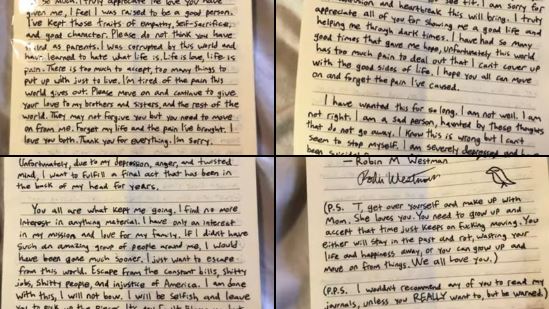 so much. I truly appreciate the love you have
given me, I feel I was raised to be a good person.
I've kept those traits of empathy, self-sacrifice,
and good character. Please do not think you have
as parents. I was corrupted by this world and
have learned to hate what life is. Life is love, life is
pain. There is too much to accept, too many things to
put up with just to live. I'm tired of the pain this
world gives out. Please move on and continue to give
your love to my brothers and sisters, and the rest of the
world. They may not forgive you but you need to move
on from me. Forget my life and the pain I've brought. I
love you both. Thank you for everything. I'm sorry.
see fit. I am sorry for
and heartbreak this will bring. I truly
appreciate all of you for showing me a good life and
helping me through dark times. I have had so many
good times that gave me hope, Unfortunately this world
has too much pain to deal out that I can't cover up
with the good sides of life. I hope you all can move
on and forget the pain I've caused.
I have wanted this for so long. I am not well. I am
not right. I am a sad person, haunted by these thoughts
that do not go away. I know this is wrong but I can't
seem to stop myself. I am severely depressed and
been suicidal
Unfortunately, due to my depression, anger, and twisted
mind, I want to fulfill a final act that has been in
the back of my head for years.
You all are what kept me going. I find no more
interest in anything material. I have only an interest
in my mission and love for my family. If I didn't have
such an amazing group of people around me, I would
have been gone much sooner. I just want to escape
from this world. Escape from the constant bills, shitty
jobs, shitty people, and injustice of America. I am done
with this, I will not bow. I will be selfish and leave
you to pick up the pieces.
— Robin M Westman
Robin Westman
(P.S. T, get over yourself and make up with
Mom. She loves you. You need to grow up and
accept that time just keeps on fucking moving. You
either will stay in the past and rot, wasting your
life and happiness away, or you can grow up and
move on from things. We all love you.)
(P.P.S. I wouldn't recommend any of you to read my
journals, unless you REALLY want to, but be warned.)